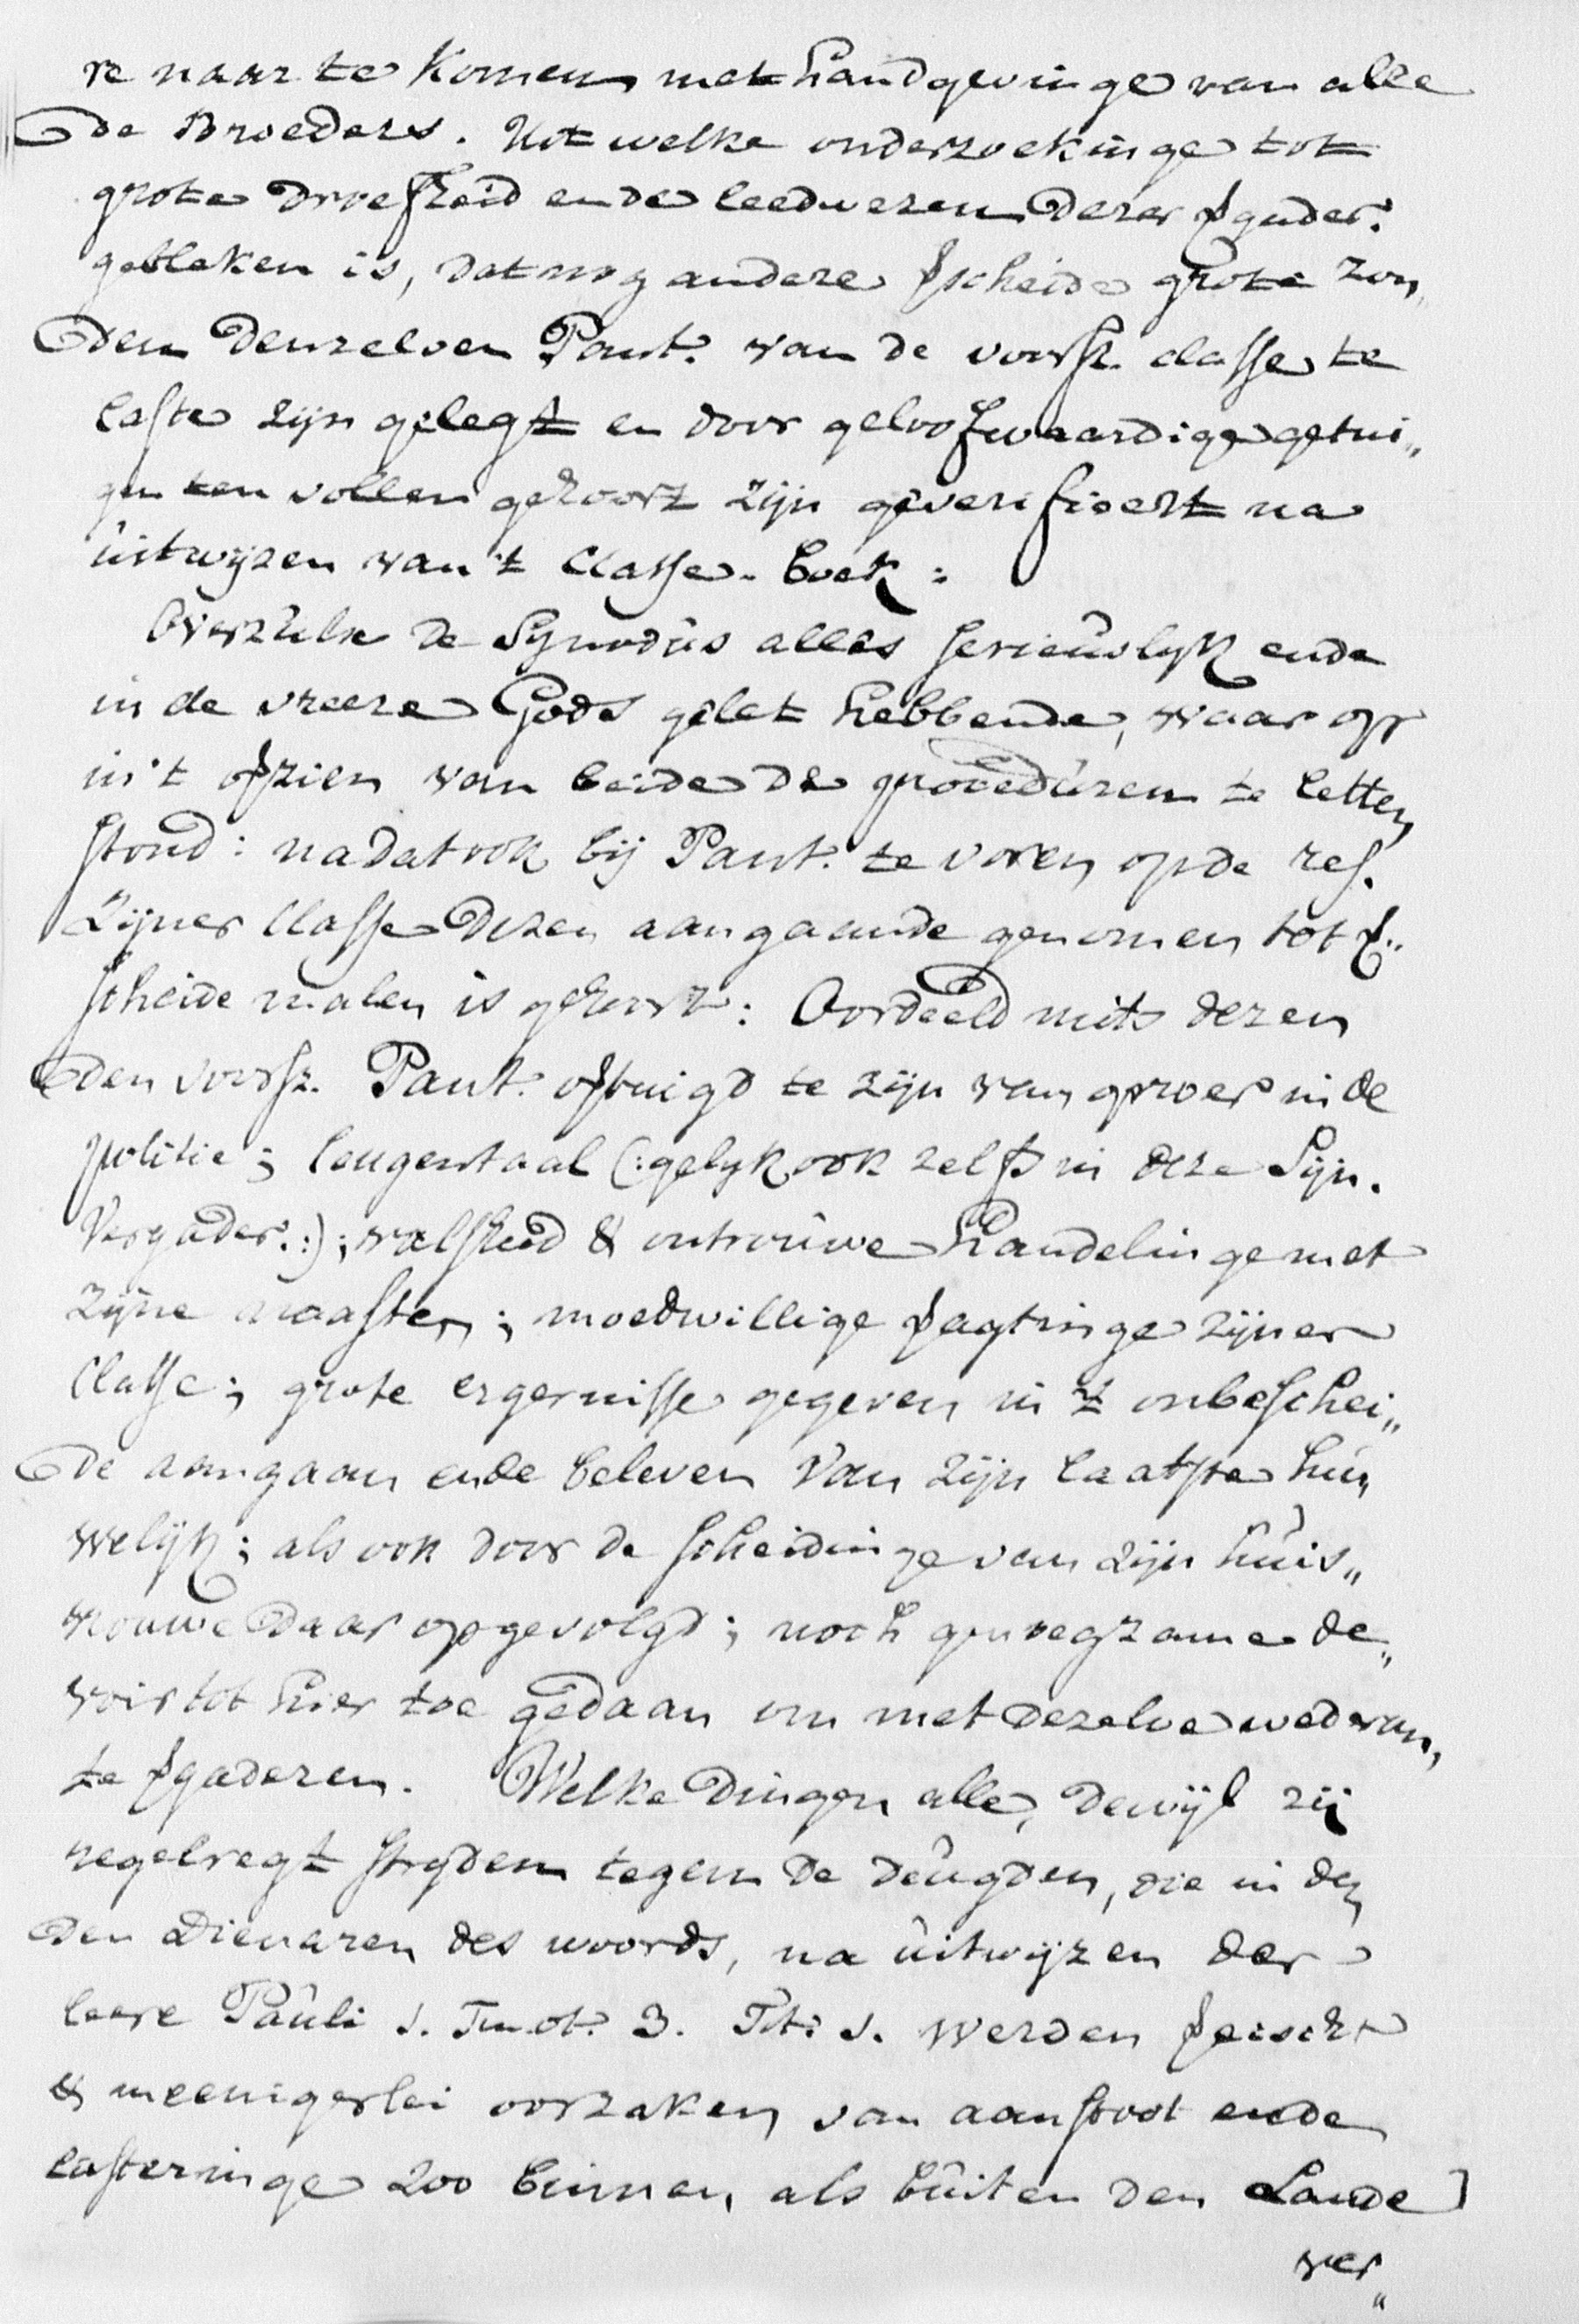 re naar te komen, met handgevinge van alle
de Broeders. Uit welke onderzoekinge tot
grote droefheid ende leedwezen dezer vgader.
gebleken is, dat nog andere vscheide grote zon„
den denzelven Pant. van de voorsz. classe te
laste zijn gelegt en door geloofwaardige getui„
gen ten vollen gehoort zijn geverifieert na
uitwijzen van 't Classe-boek:
Overzulx de Synodus alles serieuslyk ende
in de vreeze Gods gelet hebbende, waar op
in 't opzien van beide de proceduren te letten
stond: nadat ook bij Pant. te voren op de res.
Zijner Classe dezen aangaande genomen tot v„
scheide malen is gehoort: Oordeeld mits dezen
den voorsz. Pant. oftuigd te zijn van oproer in de
politie; leugentaal (:gelyk ook zelfs in deze Syn.
Vergader.:); valsheid & ontrouwe handelinge met
zijne naasten; moedwillige vagtinge zijner
Classe; grote ergernisse gegeven in 't onbeschei„
de aangaan ende beleven van zijn laatste hu„
welijk; als ook door de scheidinge van zijn huis„
vrouwe daar op gevolgd; noch genoegzame de„
voir tot hier toe gedaan om met dezelve wederom,
te vgaderen. Welke dingen alle, dewijl zij
regelregt stryden tegen de deugden, die in den
den dienaren des woords, na uitwijzen der
leere Pauli 1. Timot. 3. Tit. 1. werden veischt
& meenigerlei oorzaken van aanstoot ende
lasteringe zoo binnen, als buiten den Lande]
ver„